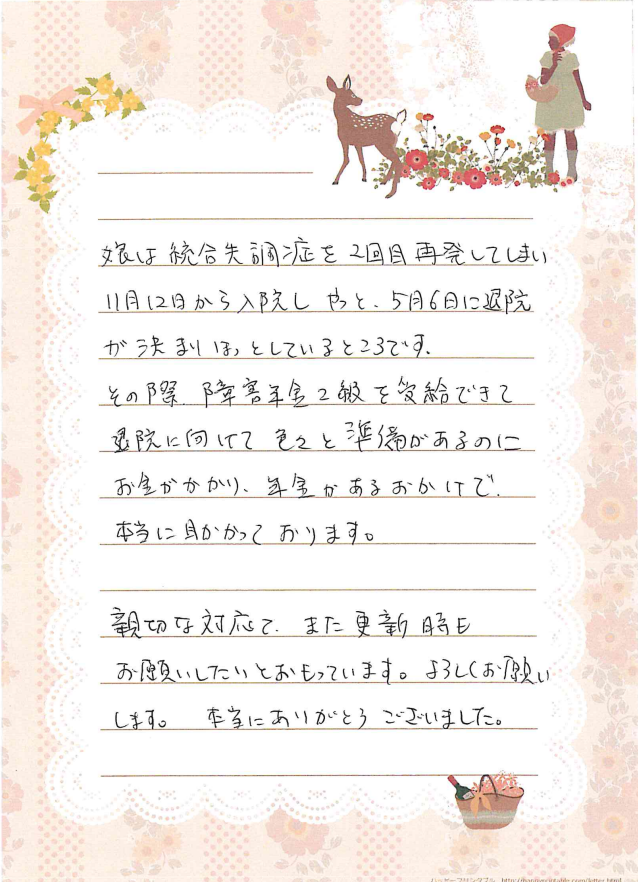 娘は 統合失調症を 2回目 再発してしまい
11月12日から入院し やっと、5月6日に退院
が 決まり ほっとしているところです。
その際、障害年金2級を受給できて
退院に向けて 色々と 準備があるのに
お金がかかり、年金があるおかげで、
本当に助かっております。
親切な対応で、また更新時も
お願いしたいとおもっています。よろしくお願い
します。 本当にありがとうございました。